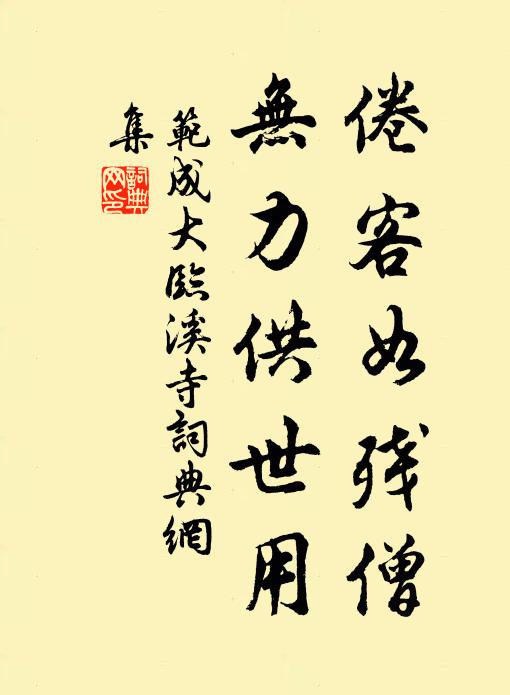 倦客如残僧
無力供世用
範成大臨溪寺詞典網
集
詞典
网印